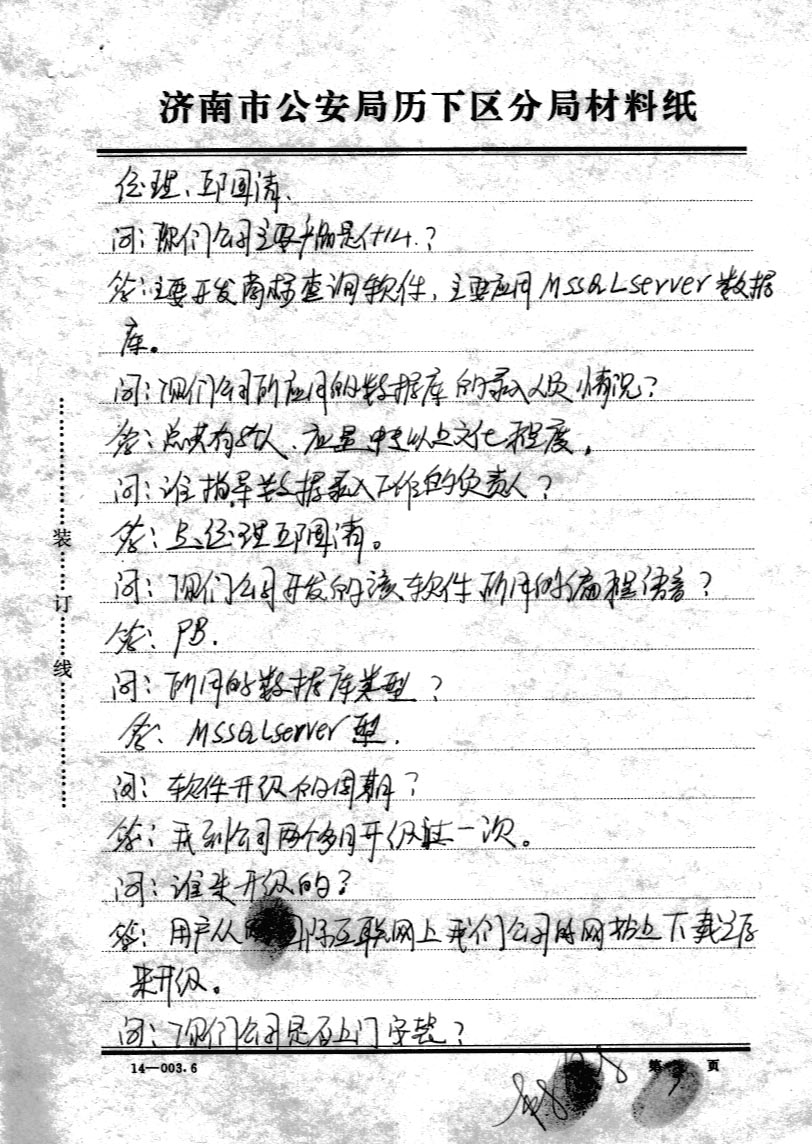 济南市公安局历下区分局材料纸
经理、邱国清、
问：你们公司主要产品是什么？
答：主要开发商标查询软件，主要应用MSSQLserver数据
库。
问：你们公司所应用的数据库的录入人员情况？
答：总共有 人、应是中专以上文化程度。
问：谁指导数据录入工作的负责人？
答：总经理邱国清。
问：你们公司开发的该软件所用的编程语言？
答：PB.
问：所用的数据库类型？
答：MSSQLserver型.
问：软件升级的周期？
答：我到公司两个多月升级过一次。
问：谁来升级的？
答：用户从 国际互联网上我们公司的网站上下载之后
来升级。
问：你们公司是否上门安装？
装
订
线
14—003.6
第 页